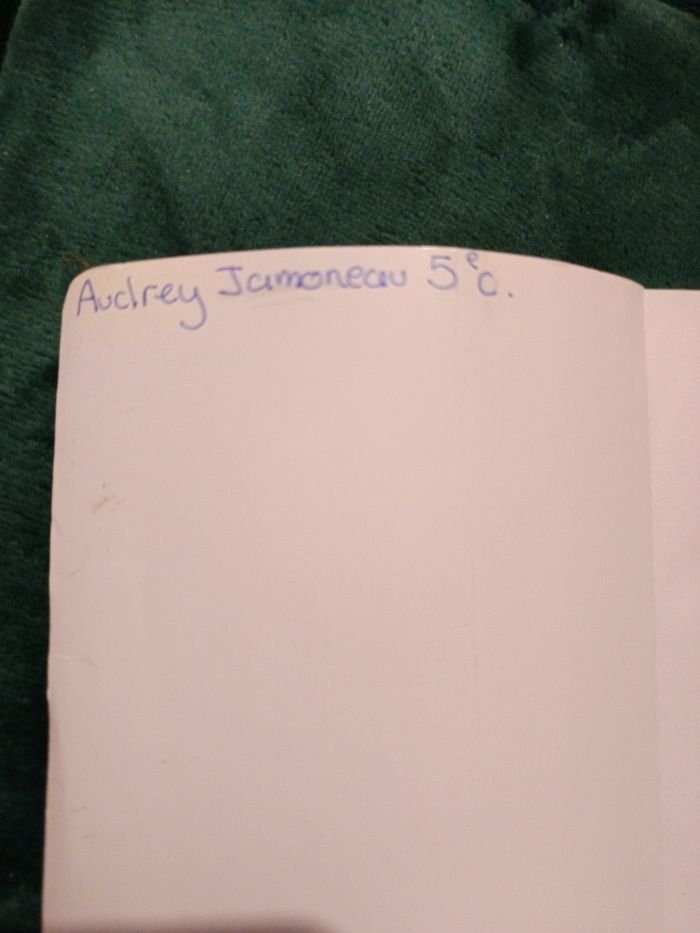 Audrey Jamoneau 5ᵉC.